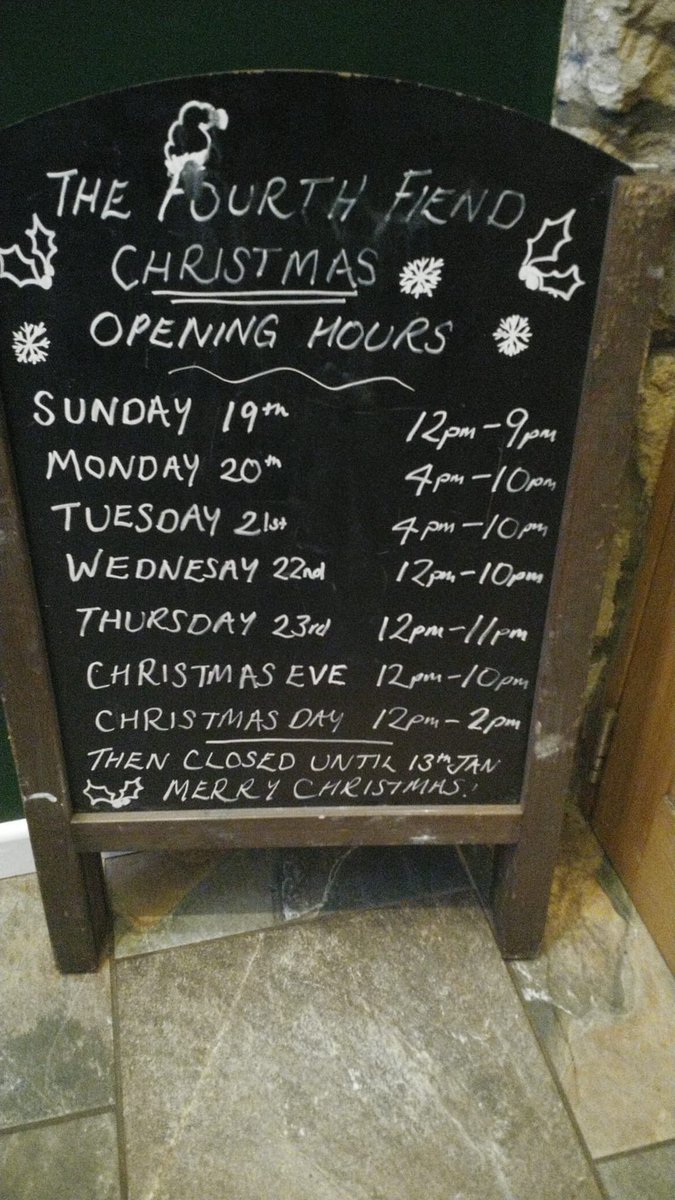 THE FOURTH FIEND
CHRISTMAS
OPENING HOURS
SUNDAY 19th 12pm-9pm
MONDAY 20th 4pm-10pm
TUESDAY 21st 4pm-10pm
WEDNESAY 22nd 12pm-10pm
THURSDAY 23rd 12pm-11pm
CHRISTMAS EVE 12pm-10pm
CHRISTMAS DAY 12pm-2pm
THEN CLOSED UNTIL 13th JAN
MERRY CHRISTMAS!